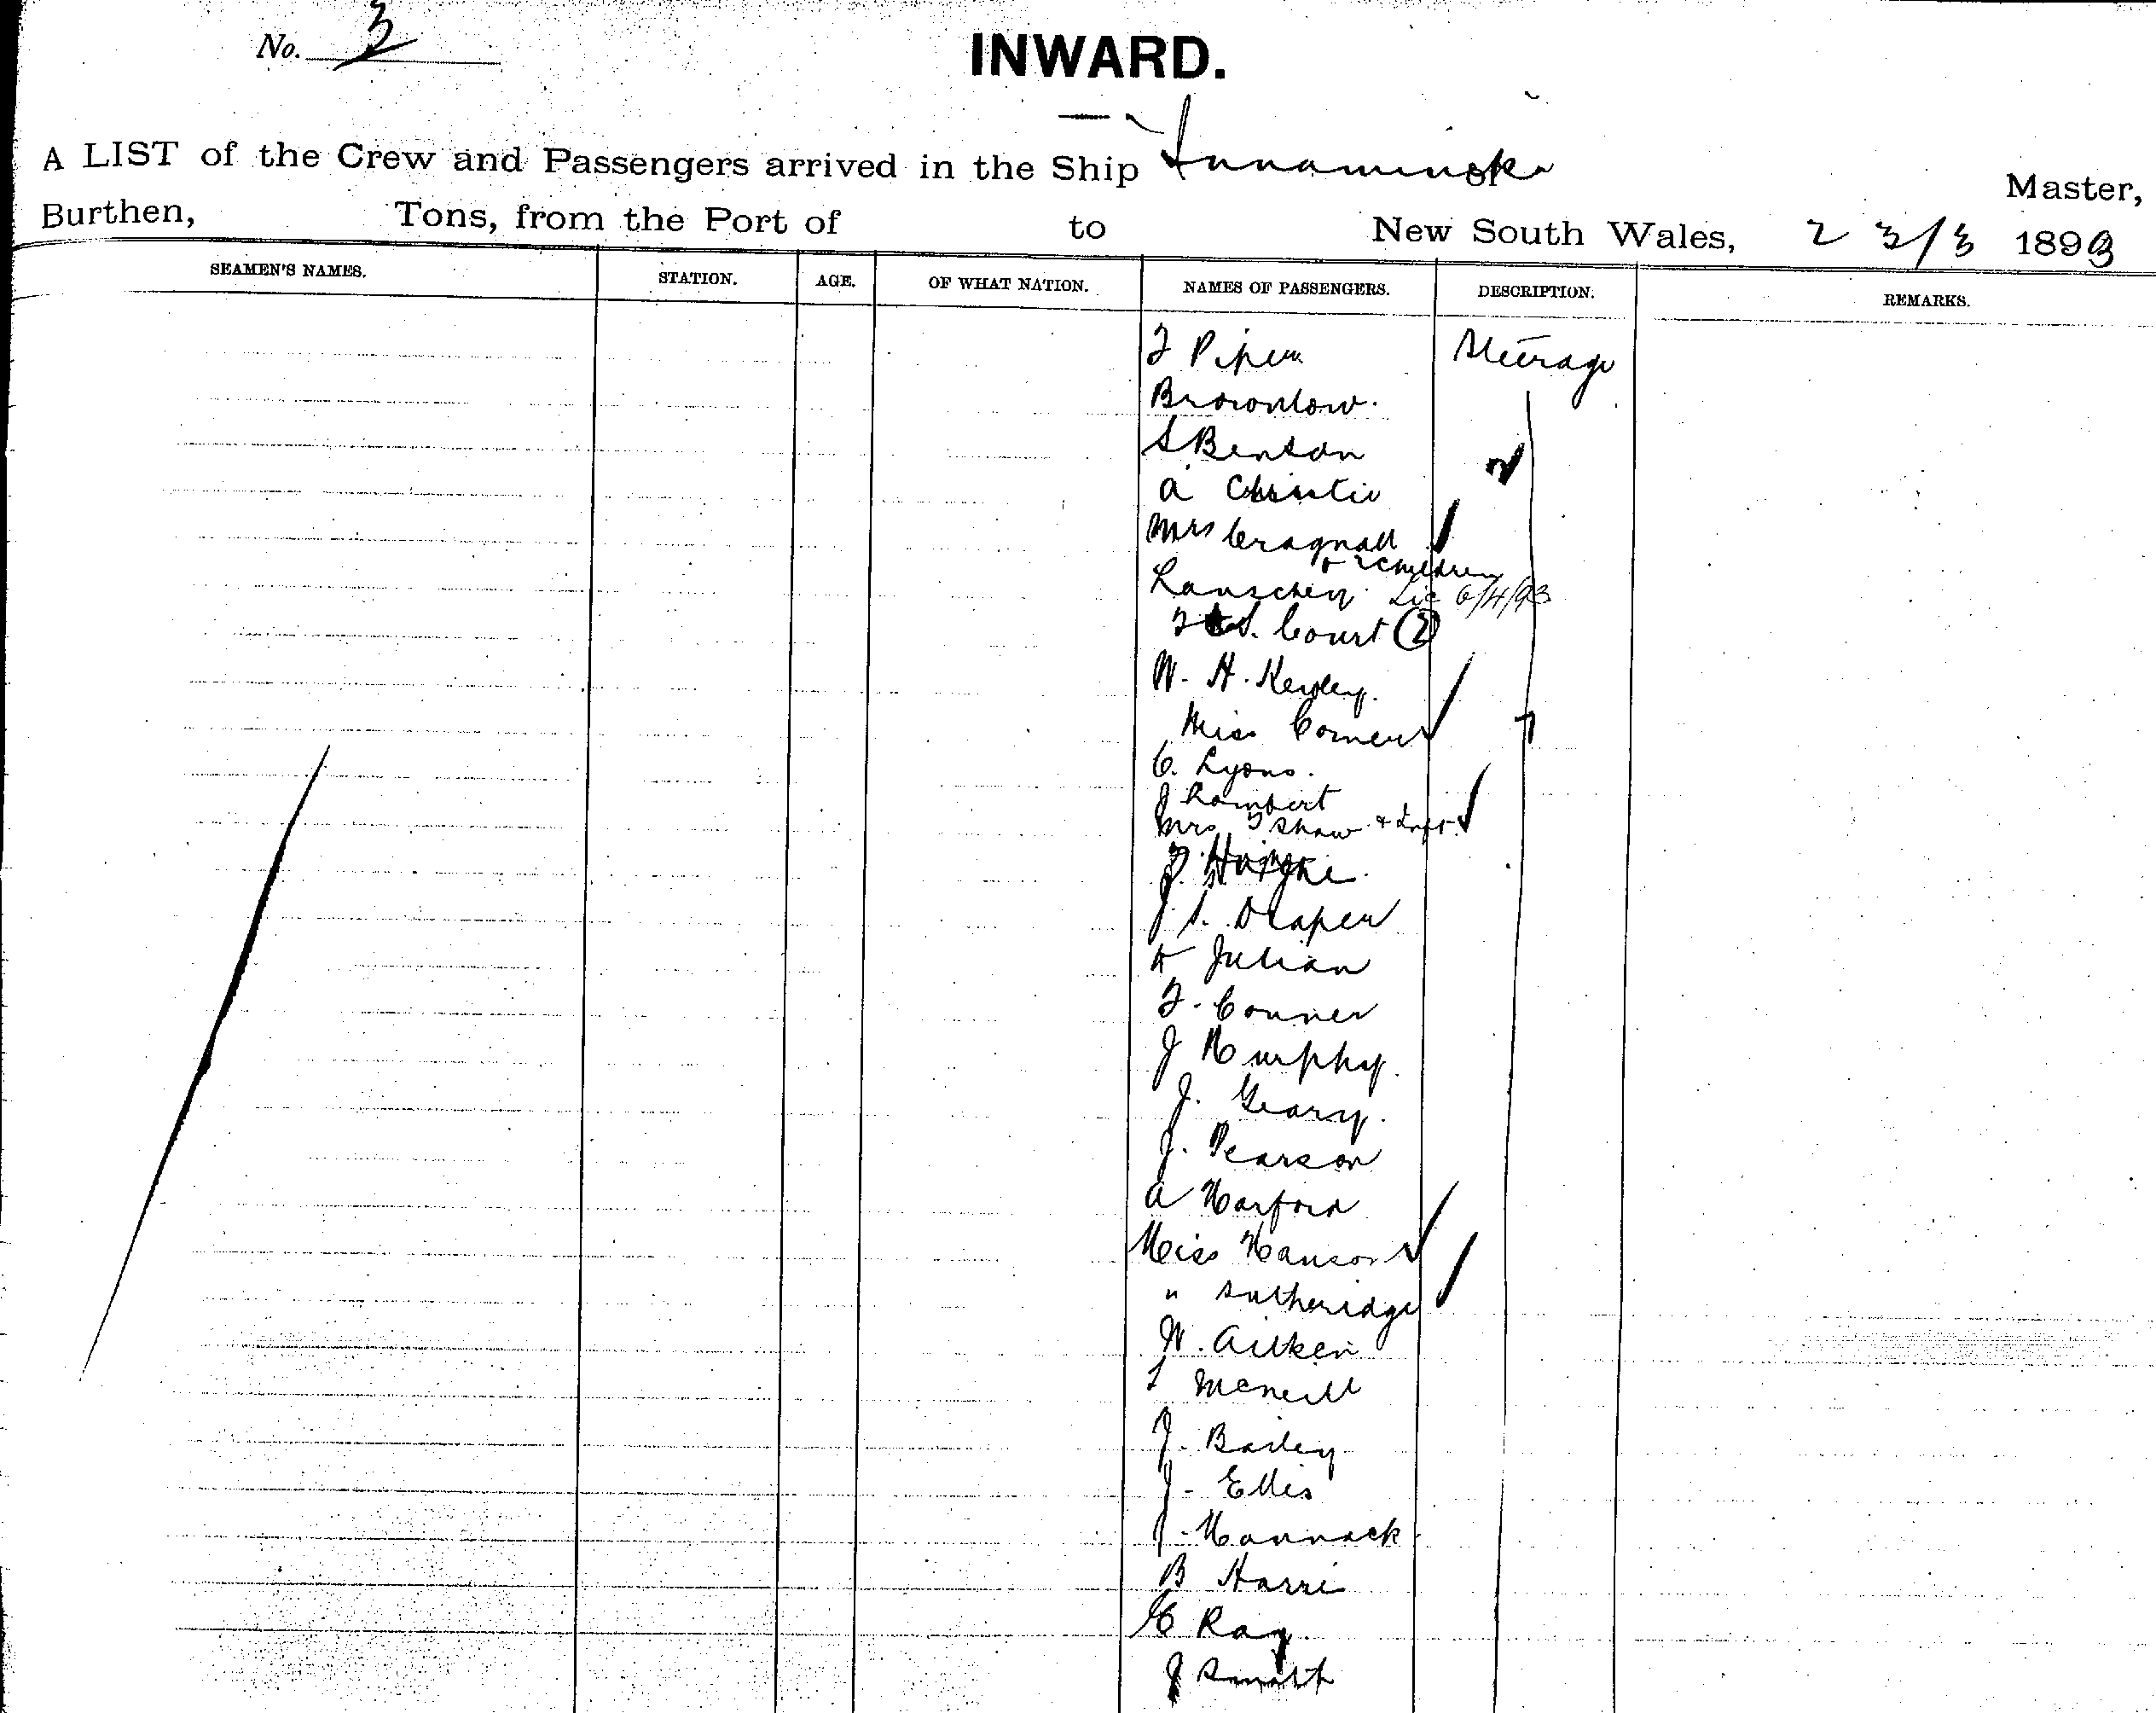 No. 3
INWARD.
A LIST of the Crew and Passengers arrived in the Ship Innamincka
Master,
Burthen, Tons, from the Port of to New South Wales, 23/3 1893
SEAMEN'S NAMES. STATION. AGE. OF WHAT NATION. NAMES OF PASSENGERS. DESCRIPTION. REMARKS.
F Piper Steerage
Brownlow.
S Benson
A Christie
Mrs Cragnall
& 2 Children
6/4/93
S. Court (2)
W. H. Kewley.
Miss Comer
C. Lyons.
J Lambert
Mrs T Shaw & Inft
J S. Draper
Julian
F. Conner
J Murphy.
J. Geary.
J. Pearson
A Harford
Miss Hanson
" Sutheridge
W. Aitken
McNeill
J. Bailey
J. Ellis
J. Hannack
B Harri
C Ray.
J Smith